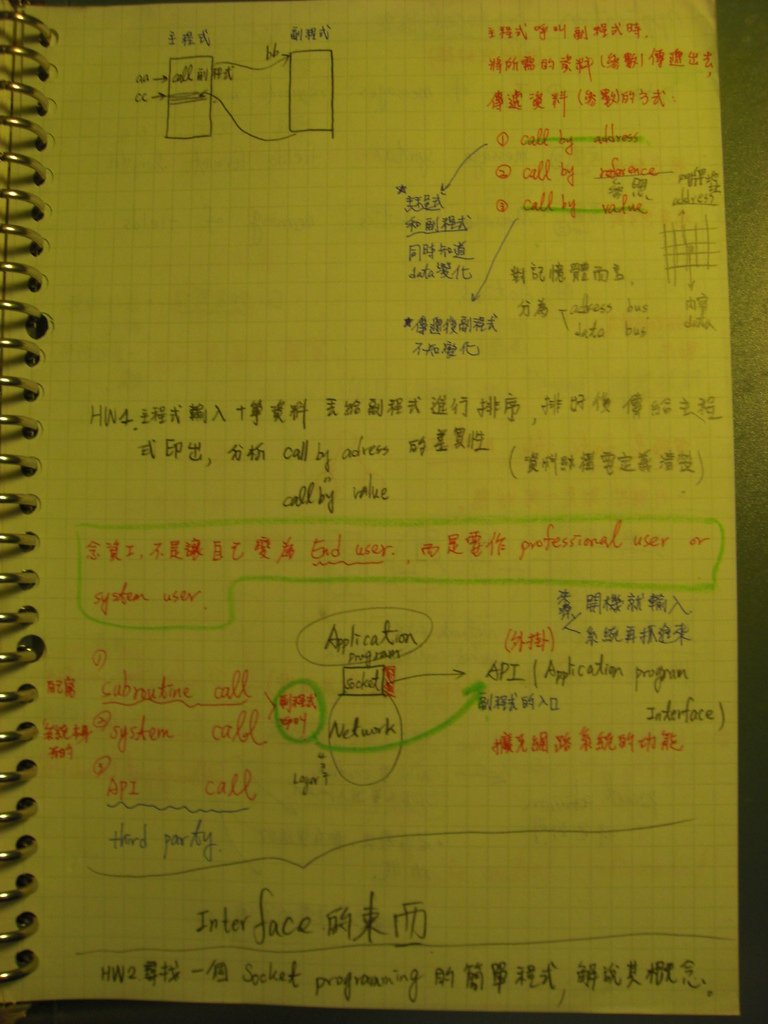 主程式
副程式
bb
aa
call 副程式
cc
主程式呼叫副程式時,
將所需的資料(參數)傳遞出去,
傳遞資料(參數)的方式:
① call by address
② call by reference
參照
③ call by value
address
*主程式
和副程式
同時知道
data變化
對記憶體而言,
分為 adress bus
data bus
內容
data
*傳遞後副程式
不知變化
HW1. 主程式輸入十筆資料 丟給副程式進行排序, 排好後傳給主程
式印出, 分析 call by adress 的差異性
call by value
(資料結構要定義清楚)
念資工, 不是讓自己變為 End user. 而是要作 professional user or
system user.
開機就輸入
系統再抓進來
Application
program
socket
Network
Layer
(外掛)
API (Application program
Interface)
副程式的入口
擴充網路系統的功能
自己寫
① subroutine call
系統本身
有的
② system call
③ API call
third party.
副程式
呼叫
Interface 的東西
HW2. 尋找一個 Socket programming 的簡單程式, 解說其概念.